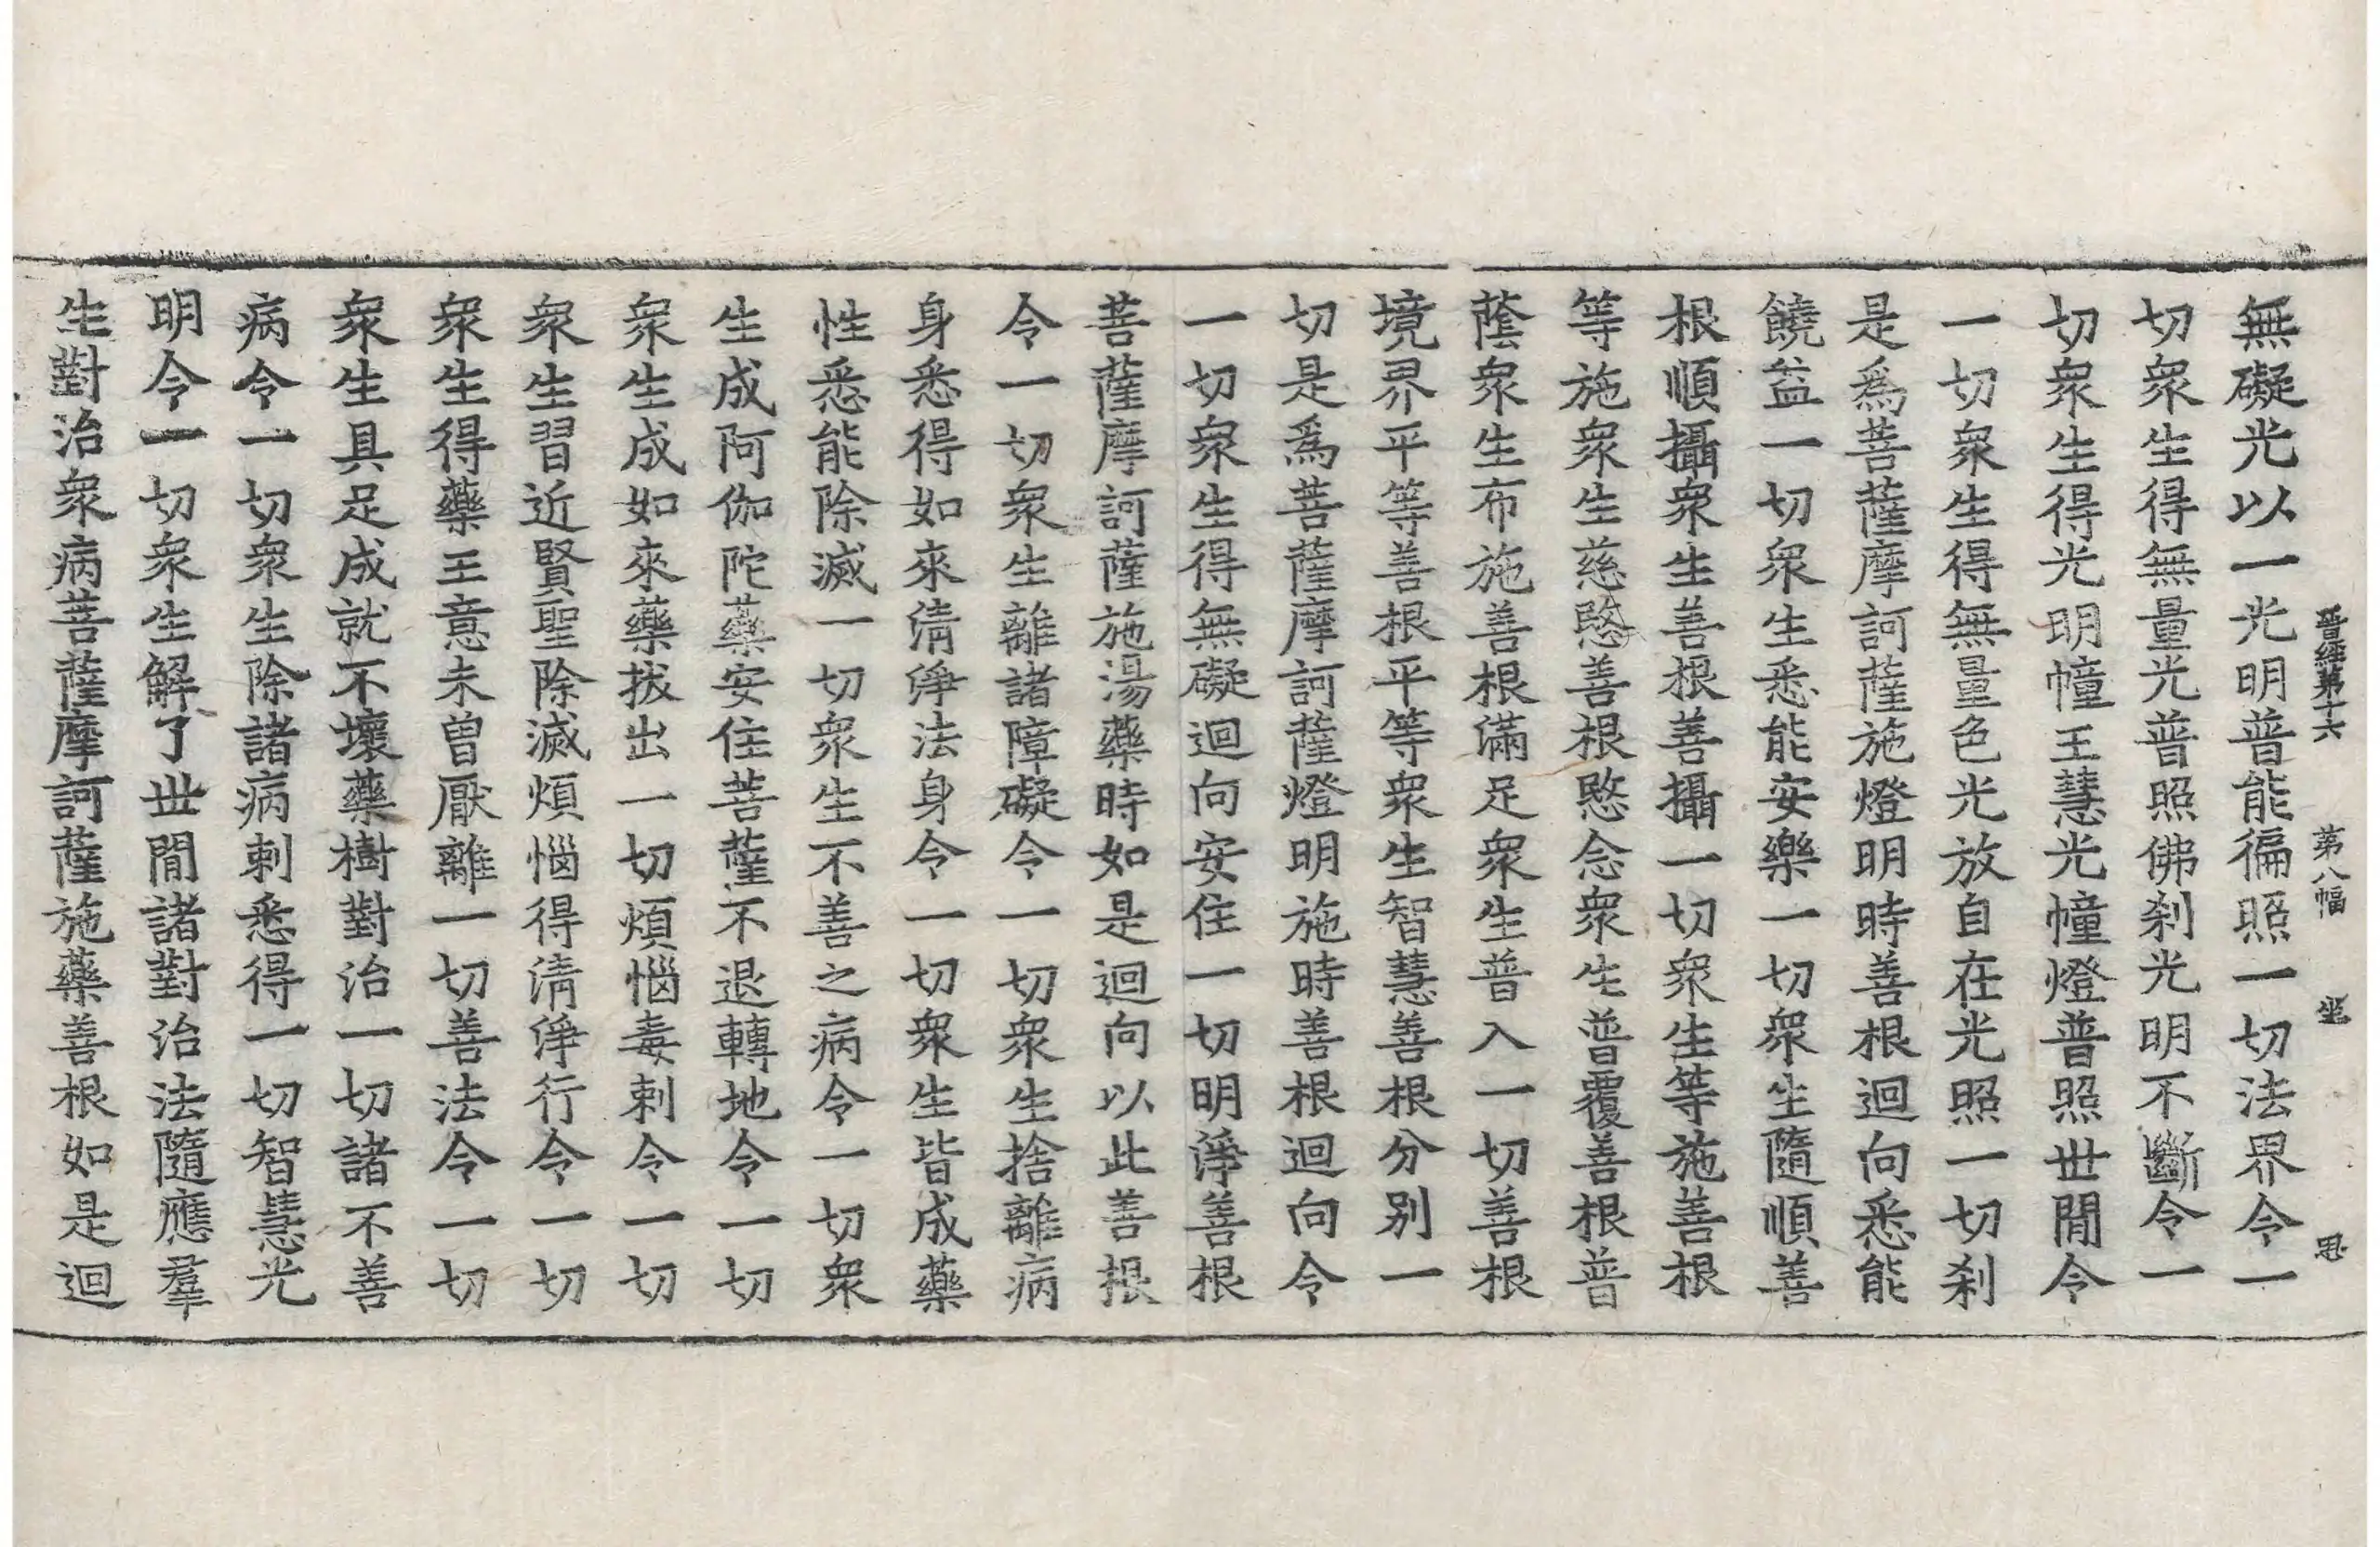 晉經第十六 第八幅 坐 思
無礙光以一光明普能徧照一切法界令一
切衆生得無量光普照佛刹光明不斷令一
切衆生得光明幢王慧光幢燈普照世閒令
一切衆生得無量色光放自在光照一切刹
是爲菩薩摩訶薩施燈明時善根迴向悉能
饒益一切衆生悉能安樂一切衆生隨順善
根順攝衆生善根善攝一切衆生等施善根
等施衆生慈愍善根愍念衆生普覆善根普
蔭衆生布施善根滿足衆生普入一切善根
境界平等善根平等衆生智慧善根分别一
切是爲菩薩摩訶薩燈明施時善根迴向令
一切衆生得無礙迴向安住一切明淨善根
菩薩摩訶薩施湯藥時如是迴向以此善根
令一切衆生離諸障礙令一切衆生捨離病
身悉得如來清淨法身令一切衆生皆成藥
性悉能除滅一切衆生不善之病令一切衆
生成阿伽陀藥安住菩薩不退轉地令一切
衆生成如來藥拔出一切煩惱毒刺令一切
衆生習近賢聖除滅煩惱得清淨行令一切
衆生得藥王意未曾厭離一切善法令一切
衆生具足成就不壞藥樹對治一切諸不善
病令一切衆生除諸病刺悉得一切智慧光
明令一切衆生解了世閒諸對治法隨應羣
生對治衆病菩薩摩訶薩施藥善根如是迴